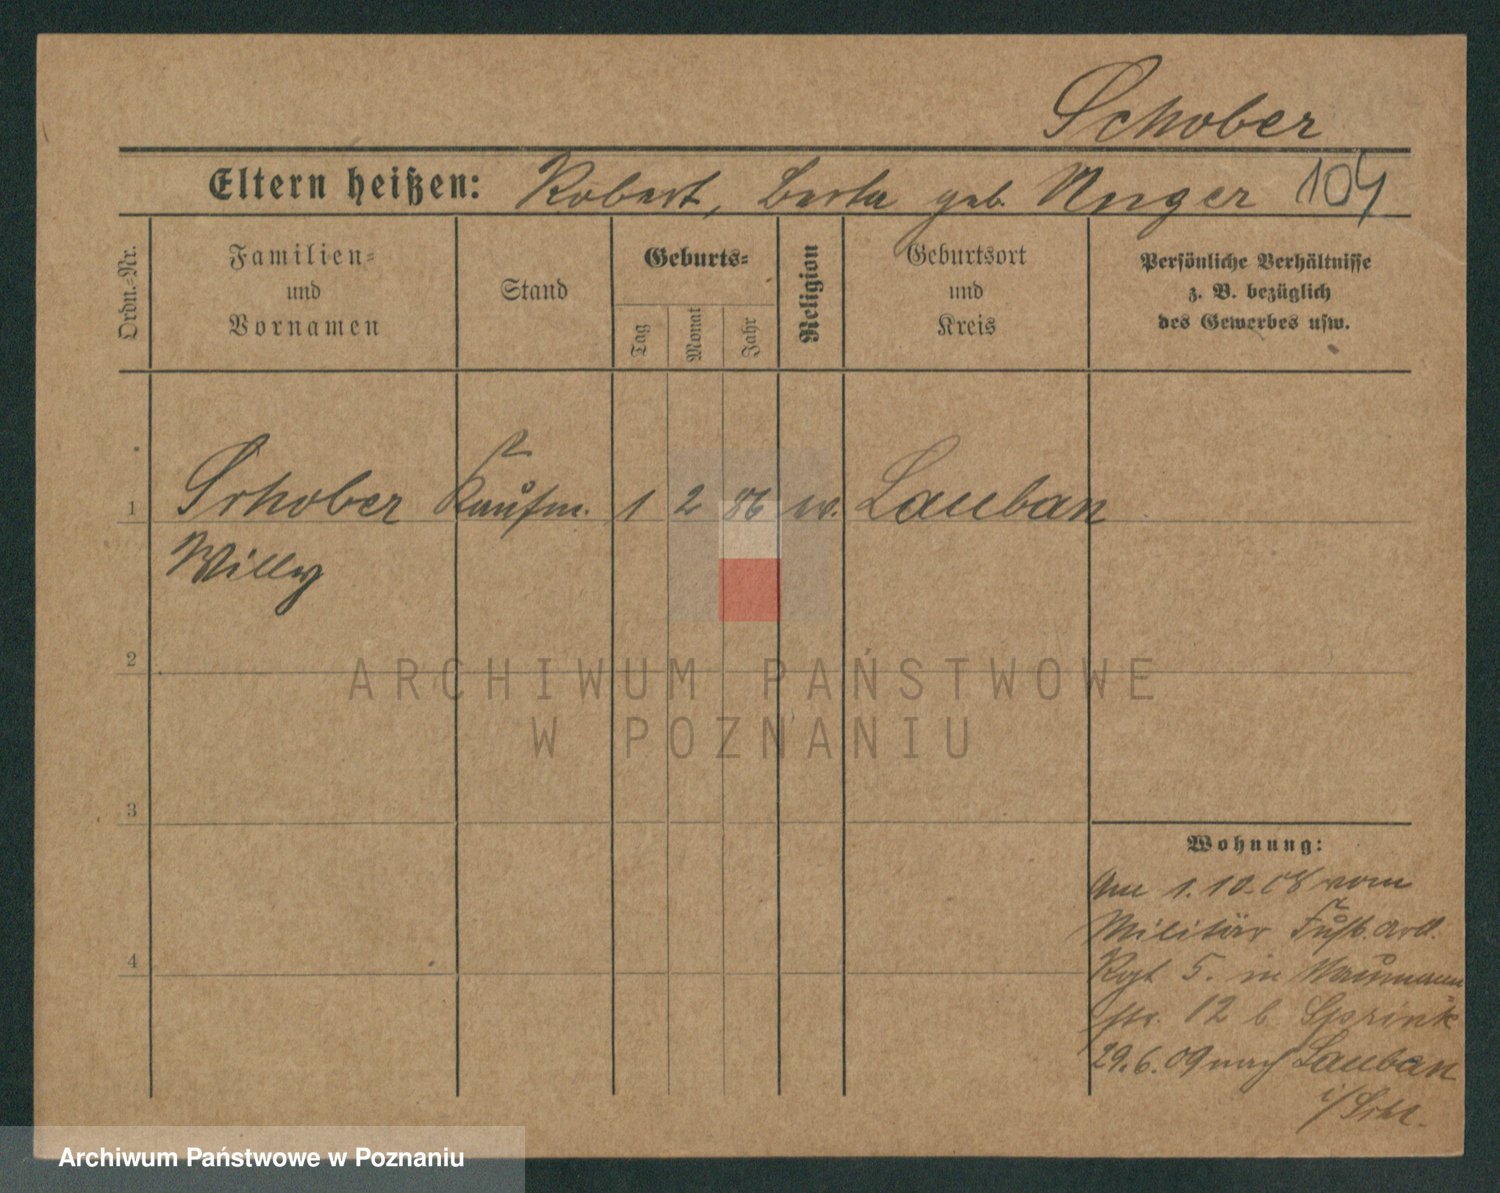 Schober
Eltern heißen: Robert, Berta geb. Unger 104
Ordn.-Nr.
Familien-
und
Vornamen
Stand
Geburts-
Tag
Monat
Jahr
Religion
Geburtsort
und
Kreis
Persönliche Verhältnisse
z. B. bezüglich
des Gewerbes usw.
1 Schober Kaufm. 1 2 86 ev. Lauban
Willy
2
3
4
Wohnung:
Am 1.10.08 vom
Militär Fußb. Artl.
Rgt 5. in Naumann
str. 12 b Sprink
29.6.09 nach Lauban
i/Schl.
ARCHIWUM PAŃSTWOWE
W POZNANIU
Archiwum Państwowe w Poznaniu